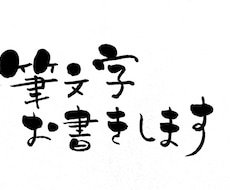 筆文字
お書きします